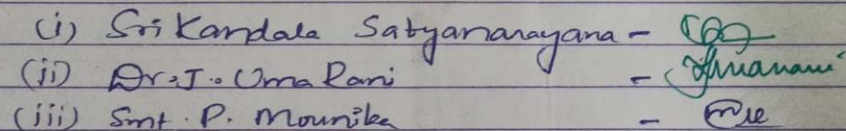 (i) Sri Kandala Satyanarayana -
(ii) Dr. J. Uma Rani -
(iii) Smt. P. Mounika -